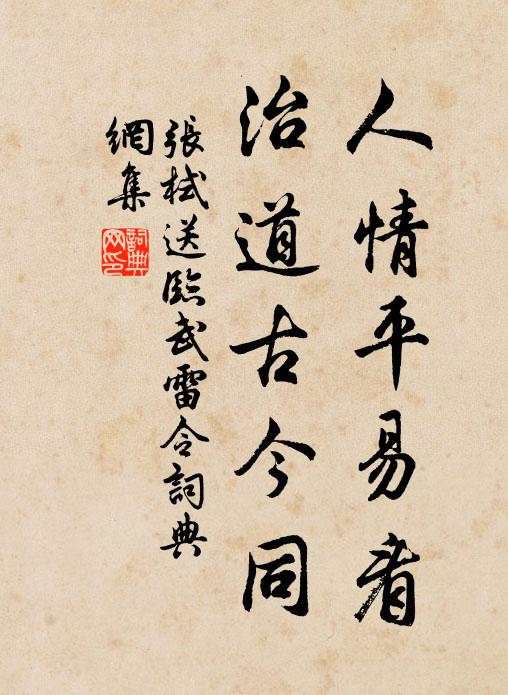 人情平易看
治道古今同
張栻送臨武雷令詞典
網集
詞典網印